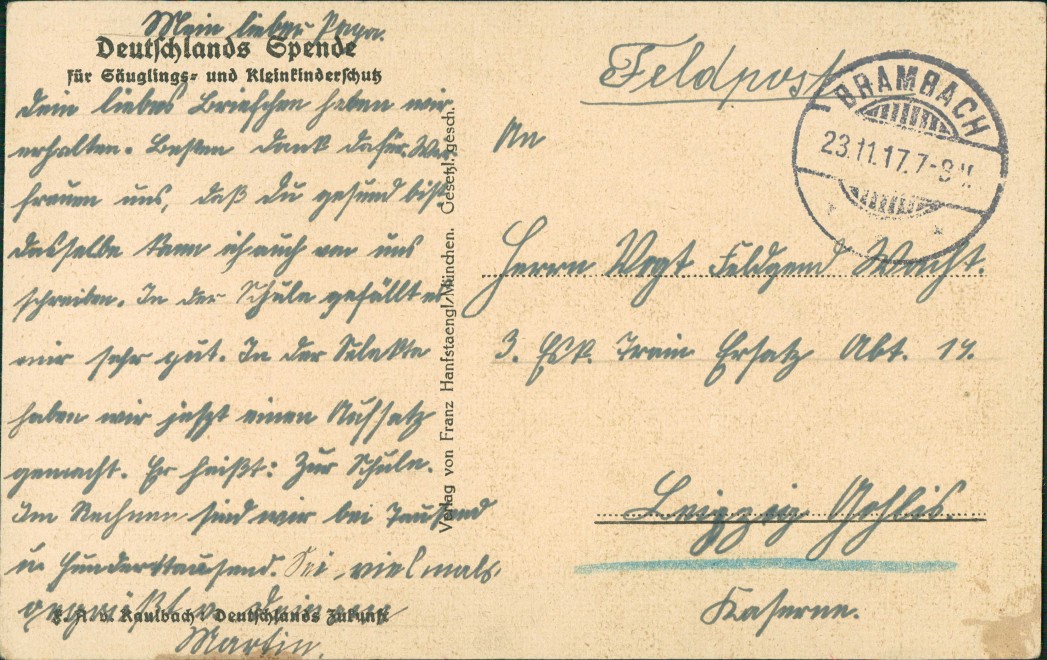 Mein lieber Papa.
Deutschlands Spende
für Säuglings- und Kleinkinderschutz
Dein liebes Briefchen haben wir
erhalten. Besten Dank dafür. Wir
freuen uns, daß Du gesund bist,
dasselbe kann ich auch von uns
schreiben. In der Schule gefällt es
mir sehr gut. In der Selekta
haben wir jetzt einen Aufsatz
gemacht. Er heißt: Zur Schule.
Im Rechnen sind wir bei Tausend
u. Hunderttausend. Sei vielmals
gegrüßt v. Deinem
F. A. v. Kaulbach Deutschlands Zukunft
Martin.
Verlag von Franz Hanfstaengl, München. Gesetzl. gesch.
Feldpost
BRAMBACH
23.11.17. 7-8 V.
An
Herrn Vogt Feldgend Wacht.
3. Esk. Train Ersatz Abt. 19.
Leipzig Gohlis.
Kaserne.